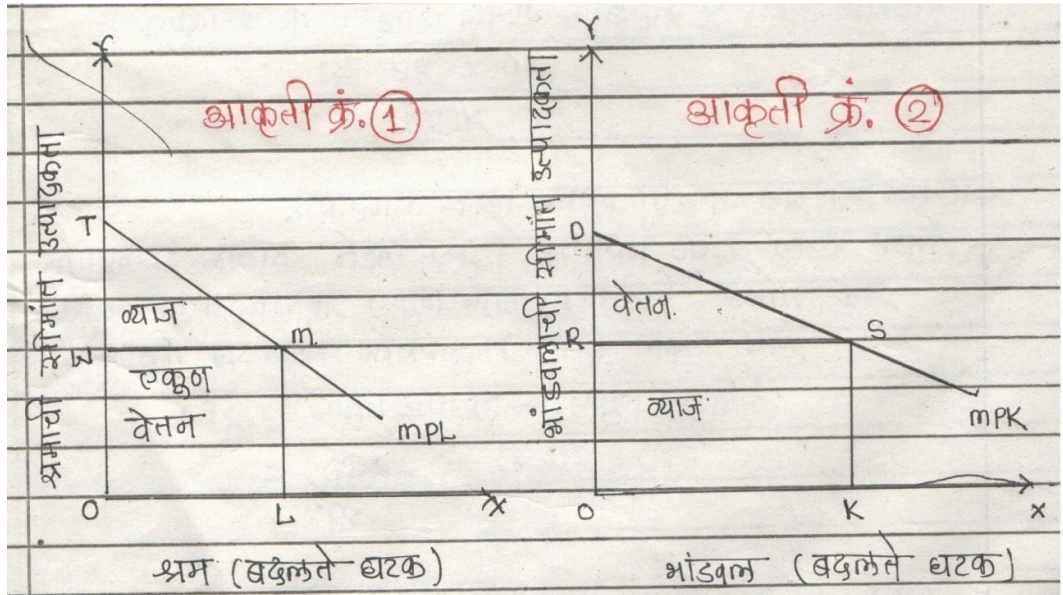 आकृती क्रं. 1
Y
श्रमाची सिमांत उत्पादकता
T
व्याज
W
m.
एकूण
वेतन
MPL
O
L
X
श्रम (बदलते घटक)
आकृती क्रं. 2
Y
भांडवलाची सिमांत उत्पादकता
D
वेतन.
R
S
व्याज
MPK
O
K
X
भांडवल (बदलते घटक)